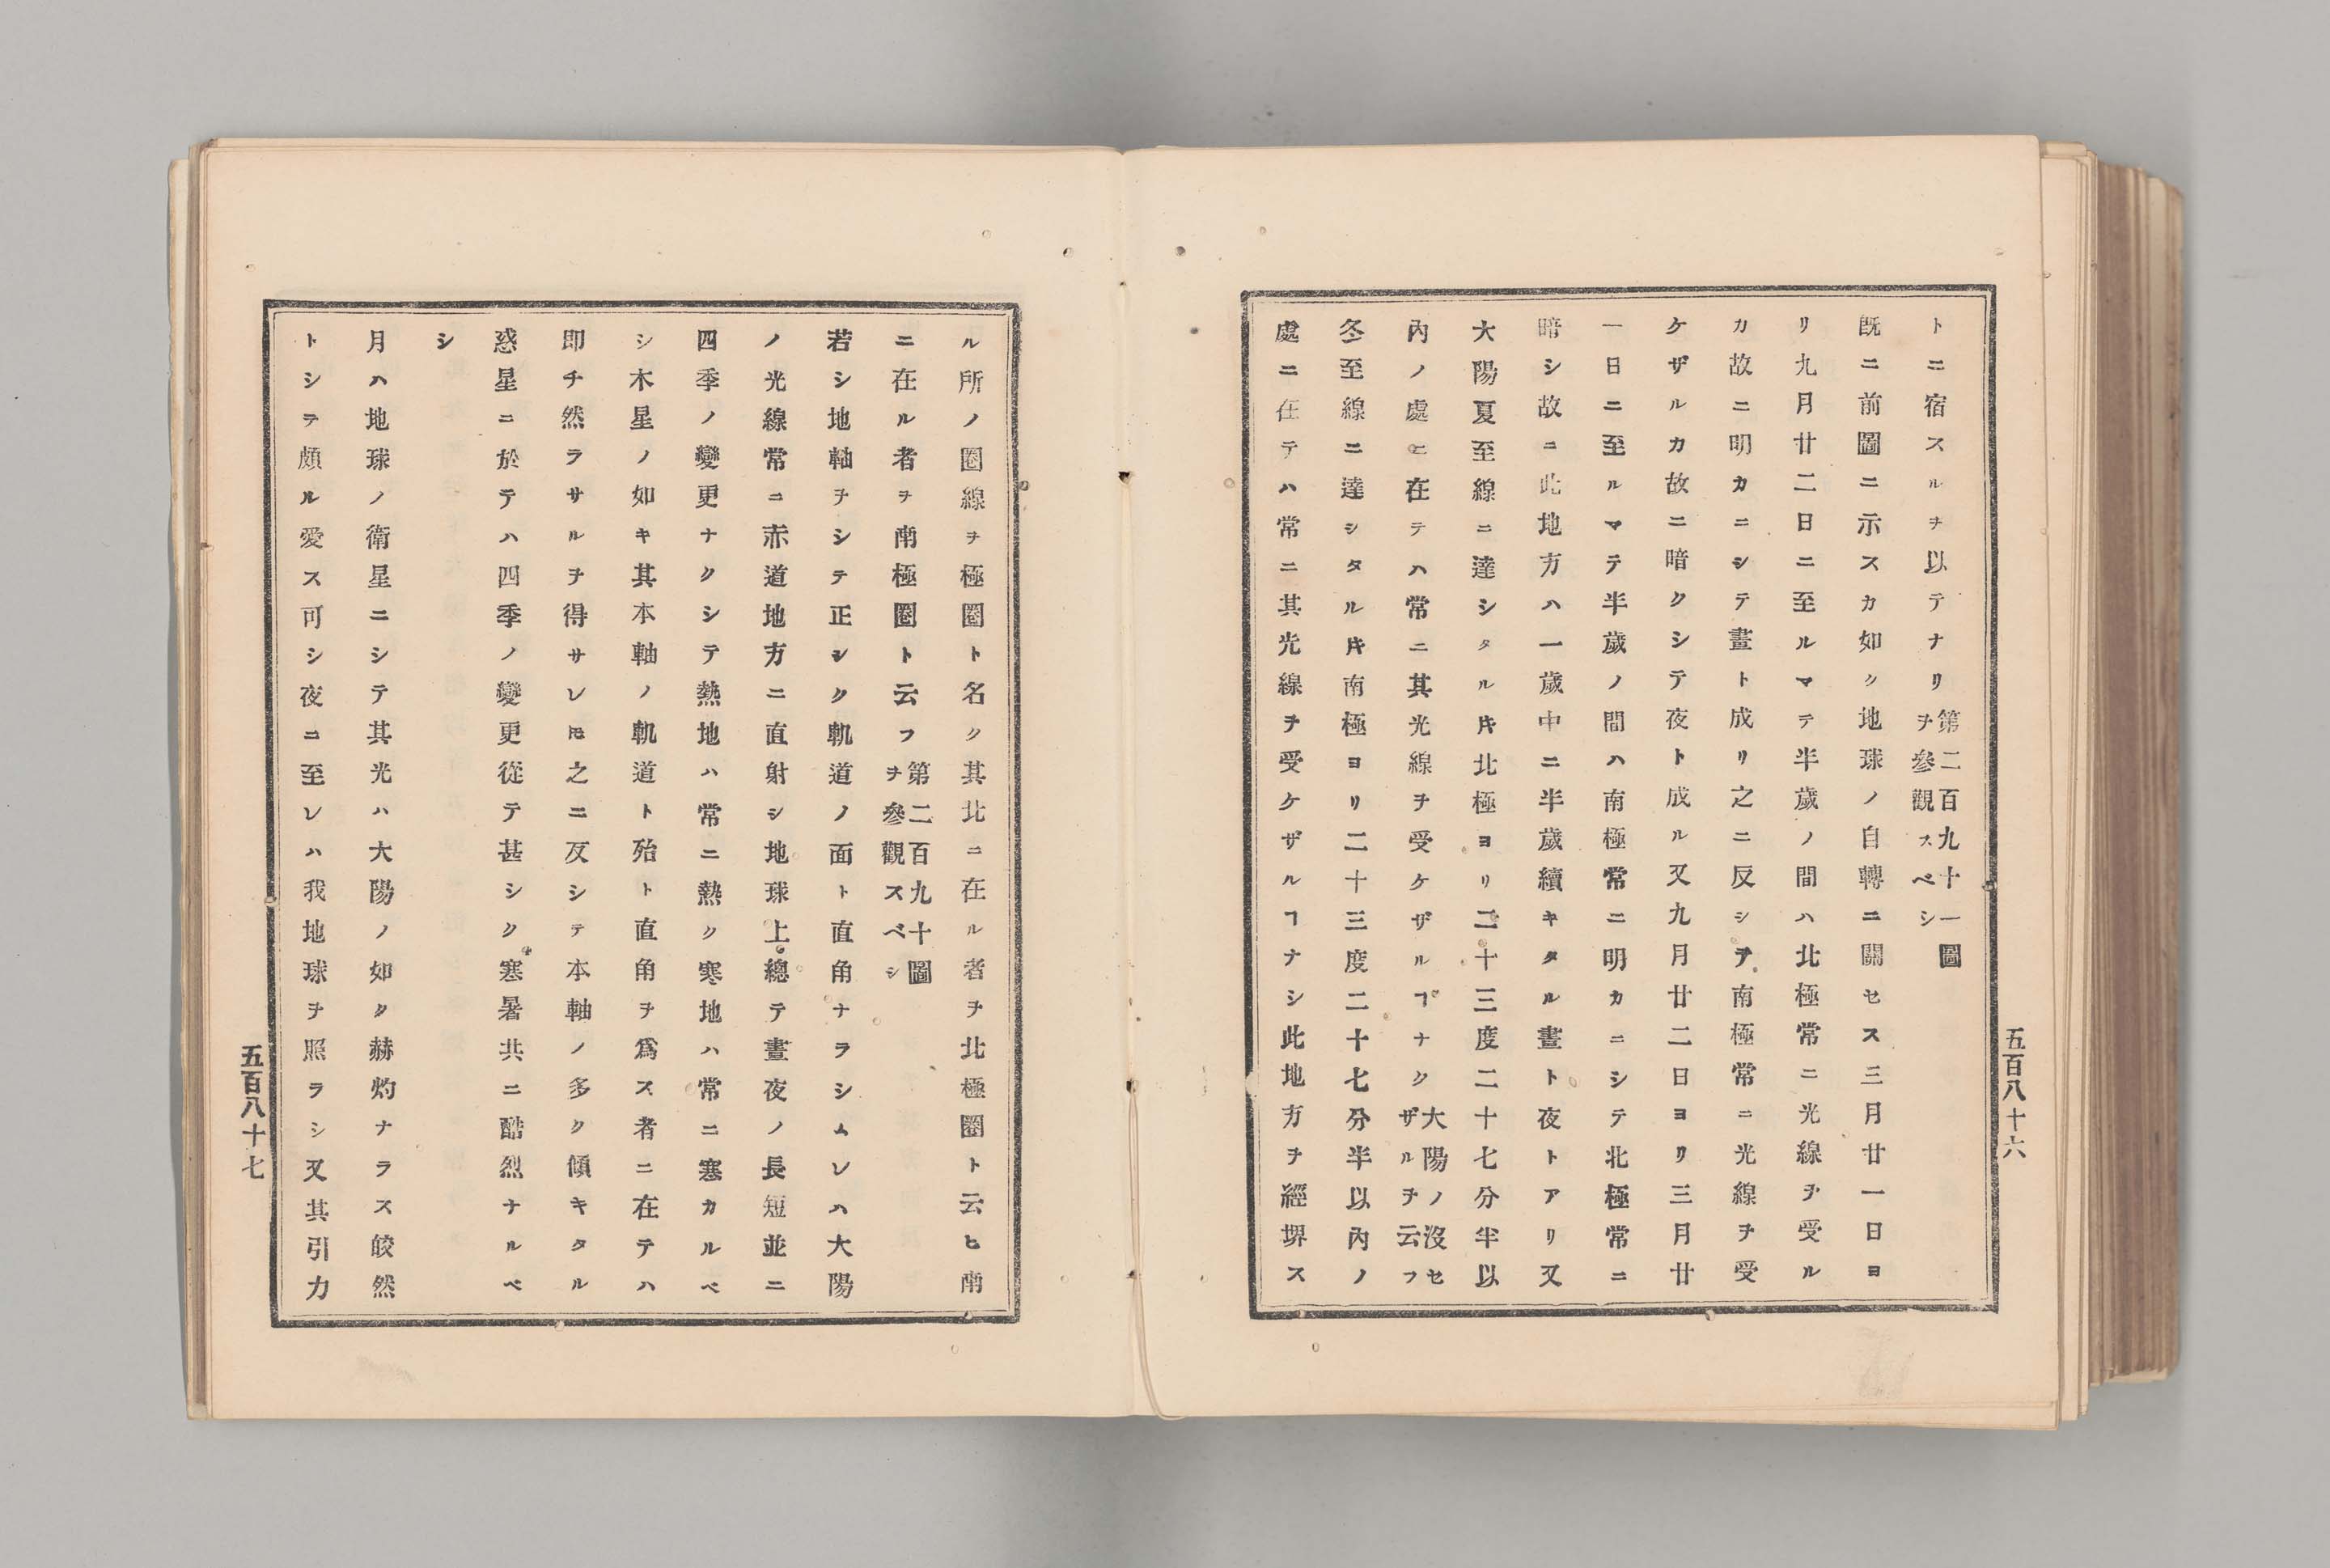 トニ宿スルヲ以テナリ第二百九十一圖ヲ參觀スベシ
既ニ前圖ニ示スカ如ク地球ノ自轉ニ關セス三月廿一日ヨ
リ九月廿二日ニ至ルマテ半歲ノ間ハ北極常ニ光線ヲ受ル
カ故ニ明カニシテ晝ト成リ之ニ反シヲ南極常ニ光線ヲ受
ケザルカ故ニ暗クシテ夜ト成ル又九月廿二日ヨリ三月廿
一日ニ至ルマテ半歲ノ間ハ南極常ニ明カニシテ北極常ニ
暗シ故ニ此地方ハ一歲中ニ半歲續キタル晝ト夜トアリ又
大陽夏至線ニ達シタル片北極ヨリ二十三度二十七分半以
內ノ處ニ在テハ常ニ其光線ヲ受ケザルヿナク大陽ノ沒セザルヲ云フ
冬至線ニ達シタル片南極ヨリ二十三度二十七分半以內ノ
處ニ在テハ常ニ其光線ヲ受ケザルヿナシ此地方ヲ經堺ス
五百八十六
ル所ノ圈線ヲ極圈ト名ク其北ニ在ル者ヲ北極圈ト云ヒ南
ニ在ル者ヲ南極圈ト云フ第二百九十圖ヲ參觀スベシ
若シ地軸ヲシテ正シク軌道ノ面ト直角ナラシムレハ大陽
ノ光線常ニ赤道地方ニ直射シ地球上總テ晝夜ノ長短並ニ
四季ノ變更ナクシテ熱地ハ常ニ熱ク寒地ハ常ニ寒カルベ
シ木星ノ如キ其本軸ノ軌道ト殆ト直角ヲ爲ス者ニ在テハ
即チ然ラサルヲ得サレ𪜈之ニ反シテ本軸ノ多ク傾キタル
惑星ニ於テハ四季ノ變更從テ甚シク寒暑共ニ酷烈ナルベ
シ
月ハ地球ノ衛星ニシテ其光ハ大陽ノ如ク赫灼ナラス皎然
トシテ頗ル愛ス可シ夜ニ至レハ我地球ヲ照ラシ又其引力
五百八十七